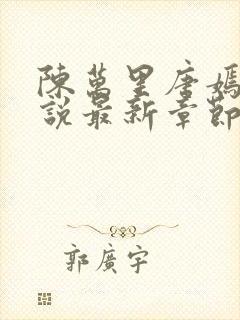 陳萬里唐嫣
說最新章節
郭廣宇